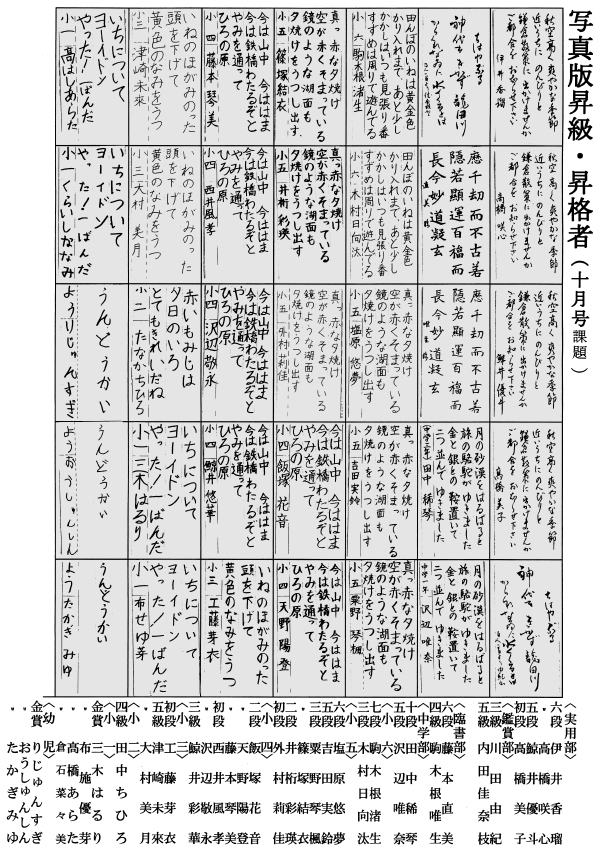 写真版昇級・昇格者（十月号課題）
秋空高く爽やかな季節
近いうちにのんびりと
鎌倉散策に出かけませんか
ご都合をお知らせ下さい
伊井香瑠
ちはやぶる
神代もきかず龍田川
からくれなゐに水くくるとは
田んぼのいねは黄金色
かり入れまで、あと少し
かかしはいつも見張り番
すずめは周りで遊んでる
小六 駒木根渚生
真っ赤な夕焼け
空が赤くそまっている
鏡のような湖面も
夕焼けをうつし出す
小五 篠塚結衣
今は山中 今ははま
今は鉄橋わたるぞと
やみを通って
ひろの原
小四 藤本琴美
いねのほがみのった
頭を下げて
黄色のなみをうつ
小三 津崎未來
いちについて
ヨーイドン
やった！一ばんだ
小一 高はしあらた
秋空高く爽やかな季節
近いうちにのんびりと
鎌倉散策に出かけませんか
ご都合をお知らせ下さい
高橋咲心
歴千劫而不古若
隠若顕運百福而
長今妙道凝玄
田んぼのいねは黄金色
かり入れまで、あと少し
かかしはいつも見張り番
すずめは周りで遊んでる
小六 木村日向汰
真っ赤な夕焼け
空が赤くそまっている
鏡のような湖面も
夕焼けをうつし出す
小五 井桁彩瑛
今は山中 今ははま
今は鉄橋わたるぞと
やみを通って
ひろの原
小四 西井風孝
いねのほがみのった
頭を下げて
黄色のなみをうつ
小三 大村美月
いちについて
ヨーイドン
やった！一ばんだ
小一 くらいしななみ
秋空高く爽やかな季節
近いうちにのんびりと
鎌倉散策に出かけませんか
ご都合をお知らせ下さい
鯨井優斗
歴千劫而不古若
隠若顕運百福而
長今妙道凝玄
真っ赤な夕焼け
空が赤くそまっている
鏡のような湖面も
夕焼けをうつし出す
小五 塩原悠夢
真っ赤な夕焼け
空が赤くそまっている
鏡のような湖面も
夕焼けをうつし出す
小五 外村莉佳
今は山中 今ははま
今は鉄橋わたるぞと
やみを通って
ひろの原
小四 沢辺敬永
赤いもみじは
夕日のいろ
とてもきれいだね
小二 たなかちひろ
うんどうかい
ようりじゅんすぎ
秋空高く爽やかな季節
近いうちにのんびりと
鎌倉散策に出かけませんか
ご都合をお知らせ下さい
高橋美子
月の砂漠をはるばると
旅の駱駝がゆきました
金と銀との鞍置いて
二つ並んでゆきました
中学三年 田中稀琴
真っ赤な夕焼け
空が赤くそまっている
鏡のような湖面も
夕焼けをうつし出す
小五 吉田実鈴
今は山中 今ははま
今は鉄橋わたるぞと
やみを通って
ひろの原
小四 飯塚花音
今は山中 今ははま
今は鉄橋わたるぞと
やみを通って
ひろの原
小四 鯨井悠華
いちについて
ヨーイドン
やった！一ばんだ
小一 三木はるり
うんどうかい
ようおうしゅんしん
ちはやぶる
神代もきかず龍田川
からくれなゐに水くくるとは
月の砂漠をはるばると
旅の駱駝がゆきました
金と銀との鞍置いて
二つ並んでゆきました
中学一年 沢辺唯奈
真っ赤な夕焼け
空が赤くそまっている
鏡のような湖面も
夕焼けをうつし出す
小五 粟野琴楓
今は山中 今ははま
今は鉄橋わたるぞと
やみを通って
ひろの原
小四 天野陽登
いねのほがみのった
頭を下げて
黄色のなみをうつ
小三 工藤芽衣
いちについて
ヨーイドン
やった！一ばんだ
小一 布せゆ芽
うんどうかい
ようたかぎみゆ
〈実用部〉
六段 伊井香瑠
〃 高橋咲心
五段 鯨井優斗
初段 高橋美子
〈鑑賞部〉
五級 内田佳奈枝
三級 川由紀
〈臨書部〉
六段 藤本直美
四級 駒木根唯生
〈中学部〉
十段 田中稀琴
五段 沢辺唯奈
〈小六〉
七段 駒木根渚生
三段 木村日向汰
〈小五〉
六段 塩原悠夢
五段 吉田実鈴
〃 粟野琴楓
三段 篠塚結衣
〃 井桁彩瑛
初段 外村莉佳
〈小四〉
二段 飯塚花音
〃 天野陽登
〃 藤本琴美
初段 西井風孝
〃 沢辺敬永
三級 鯨井彩華
〈小三〉
初段 工藤芽衣
五級 津崎未來
〃 大村美月
〈小二〉
四級 田中ちひろ
〈小一〉
金賞 三木はるり
〃 布施優芽
〃 高橋あらた
〃 倉石菜々美
〈幼児〉
金賞 りじゅんすぎ
〃 おうしゅんしん
〃 たかぎみゆ